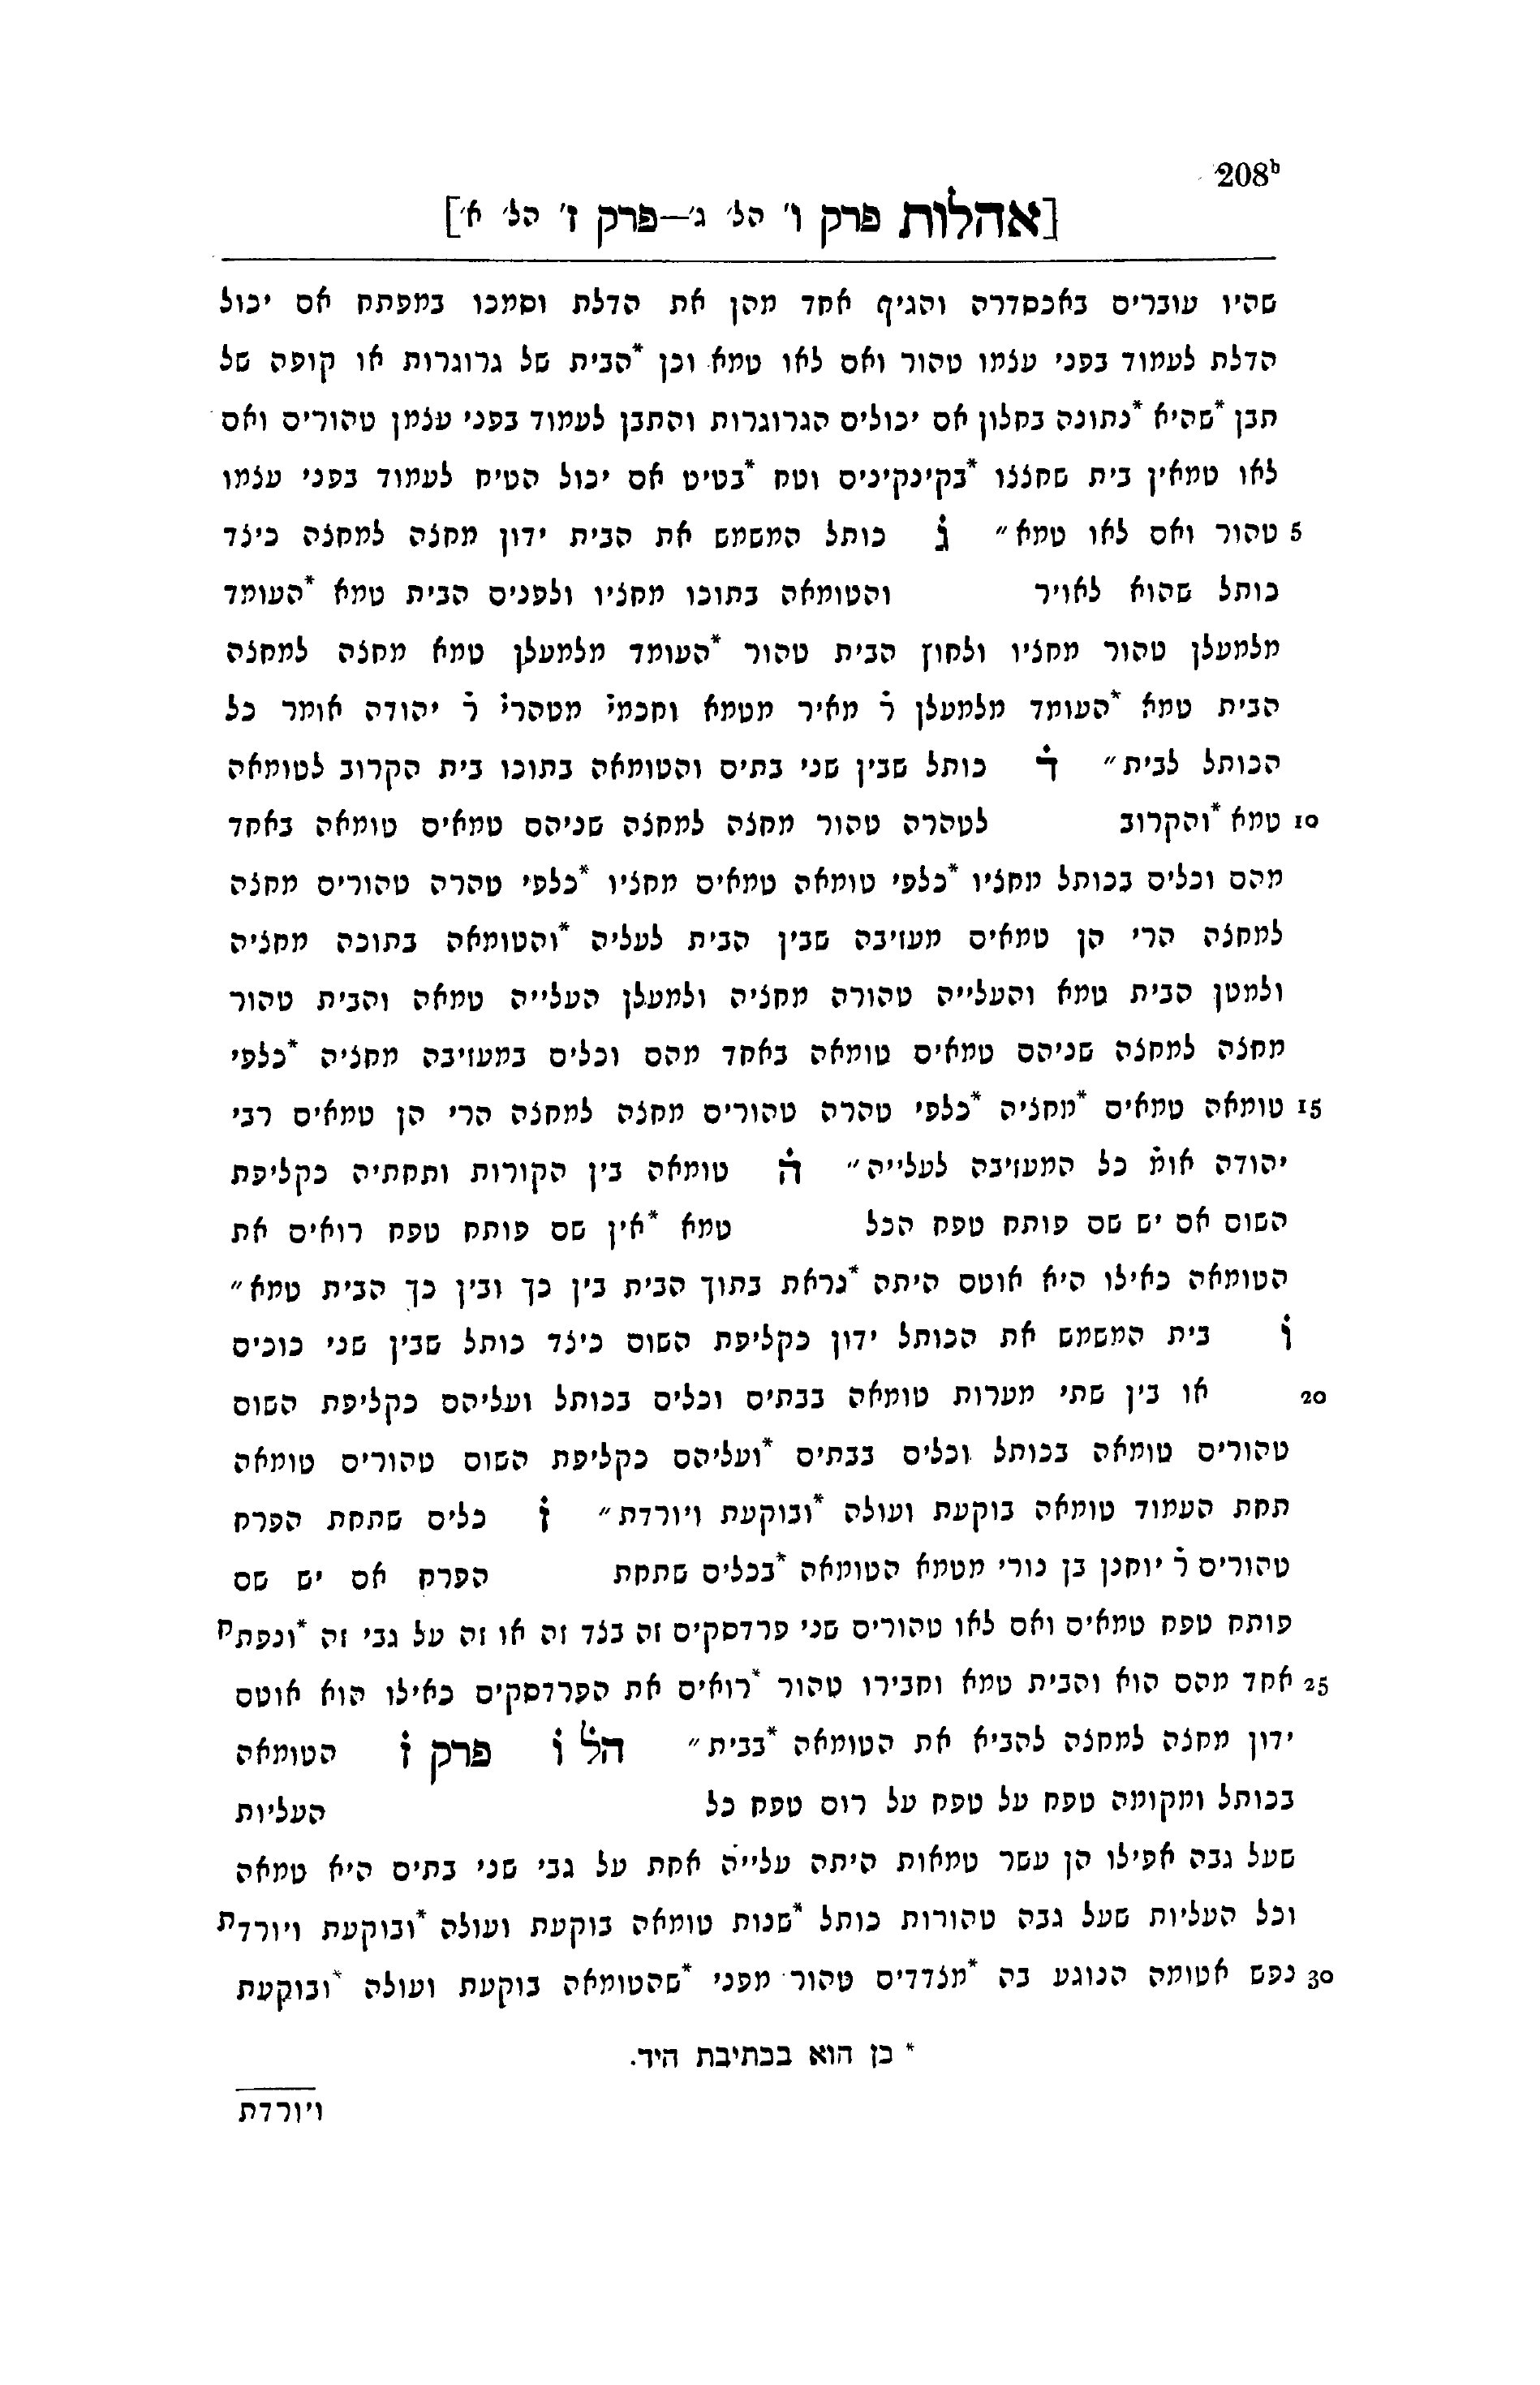 208b
[אהלות פרק ו' הל' ג'—פרק ז' הל' א']
שהיו עוברים באכסדרה והגיף אחד מהן את הדלת וסמכו במפתח אם יכול
הדלת לעמוד בפני עצמו טהור ואם לאו טמא וכן *הבית של גרוגרות או קופה של
תבן *שהיא *נתונה בחלון אם יכולים הגרוגרות והתבן לעמוד בפני עצמן טהורים ואם
לאו טמאין בית שחצצו *בקינקינים וטח *בטיט אם יכול הטיח לעמוד בפני עצמו
5 טהור ואם לאו טמא״ ג̇ כותל המשמש את הבית ידון מחצה למחצה כיצד
כותל שהוא לאויר והטומאה בתוכו מחציו ולפנים הבית טמא *העומד
מלמעלן טהור מחציו ולחוץ הבית טהור *העומד מלמעלן טמא מחצה למחצה
הבית טמא *העומד מלמעלן ר̇ מאיר מטמא וחכמי̇ מטהרי̇ ר̇ יהודה אומר כל
הכותל לבית״ ד̇ כותל שבין שני בתים והטומאה בתוכו בית הקרוב לטומאה
10 טמא *והקרוב לטהרה טהור מחצה למחצה שניהם טמאים טומאה באחד
מהם וכלים בכותל מחציו *כלפי טומאה טמאים מחציו *כלפי טהרה טהורים מחצה
למחצה הרי הן טמאים מעזיבה שבין הבית לעליה *והטומאה בתוכה מחציה
ולמטן הבית טמא והעלייה טהורה מחציה ולמעלן העלייה טמאה והבית טהור
מחצה למחצה שניהם טמאים טומאה באחד מהם וכלים במעזיבה מחציה *כלפי
15 טומאה טמאים *מחציה *כלפי טהרה טהורים מחצה למחצה הרי הן טמאים רבי
יהודה אומ̇ כל המעזיבה לעלייה״ ה̇ טומאה בין הקורות ותחתיה כקליפת
השום אם יש שם פותח טפח הכל טמא *אין שם פותח טפח רואים את
הטומאה כאילו היא אוטם היתה *נראת בתוך הבית בין כך ובין כך הבית טמא״
ו̇ בית המשמש את הכותל ידון כקליפת השום כיצד כותל שבין שני כוכים
20 או בין שתי מערות טומאה בבתים וכלים בכותל ועליהם כקליפת השום
טהורים טומאה בכותל וכלים בבתים *ועליהם כקליפת השום טהורים טומאה
תחת העמוד טומאה בוקעת ועולה *ובוקעת ויורדת״ ז̇ כלים שתחת הפרח
טהורים ר̇ יוחנן בן נורי מטמא הטומאה *בכלים שתחת הפרח אם יש שם
פותח טפח טמאים ואם לאו טהורים שני פרדסקים זה בצד זה או זה על גבי זה *ונפתח
25 אחד מהם הוא והבית טמא וחבירו טהור *רואים את הפרדסקים כאילו הוא אוטם
ידון מחצה למחצה להביא את הטומאה *בבית״ הל̇ ו̇ פרק ז̇ הטומאה
בכותל ומקומה טפח על טפח על רום טפח כל העליות
שעל גבה אפילו הן עשר טמאות היתה עלייה אחת על גבי שני בתים היא טמאה
וכל העליות שעל גבה טהורות כותל *שנות טומאה בוקעת ועולה *ובוקעת ויורדת
30 נפש אטומה הנוגע בה *מצדדים טהור מפני *שהטומאה בוקעת ועולה *ובוקעת
* כן הוא בכתיבת היד.
ויורדת